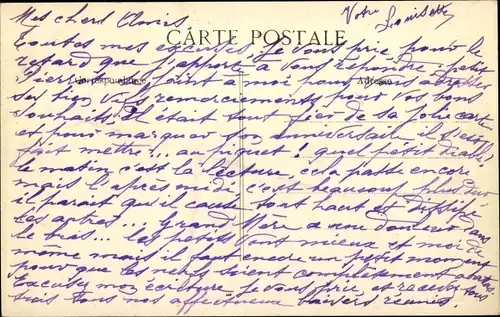 Mes chers Clovis
Votre Louisette
CARTE POSTALE
Toutes mes excuses, je vous prie pour le
retard que j'apporte à vous répondre. petit
Correspondance
Adresse
Pierre se joint à moi pour vous adresser
ses remerciements pour vos bons
souhaits. Il était tout fier de sa jolie carte
et pour marquer son anniversaire il s'est
fait mettre ... au piquet! quel petit diable!
le matin c'est la lecture, cela passe encore
mais l'après midi c'est beaucoup plus dur.
il parait que il cause tout haut et dissipe
les autres ... Grand Mère a une douleur dans
le bras ... les petits vont mieux et moi de
même mais il faut encore un petit moment
pour que les nerfs soient complètement
Excusez mon écriture je vous prie et recevez tous
trois tous nos affectueux baisers réunis.